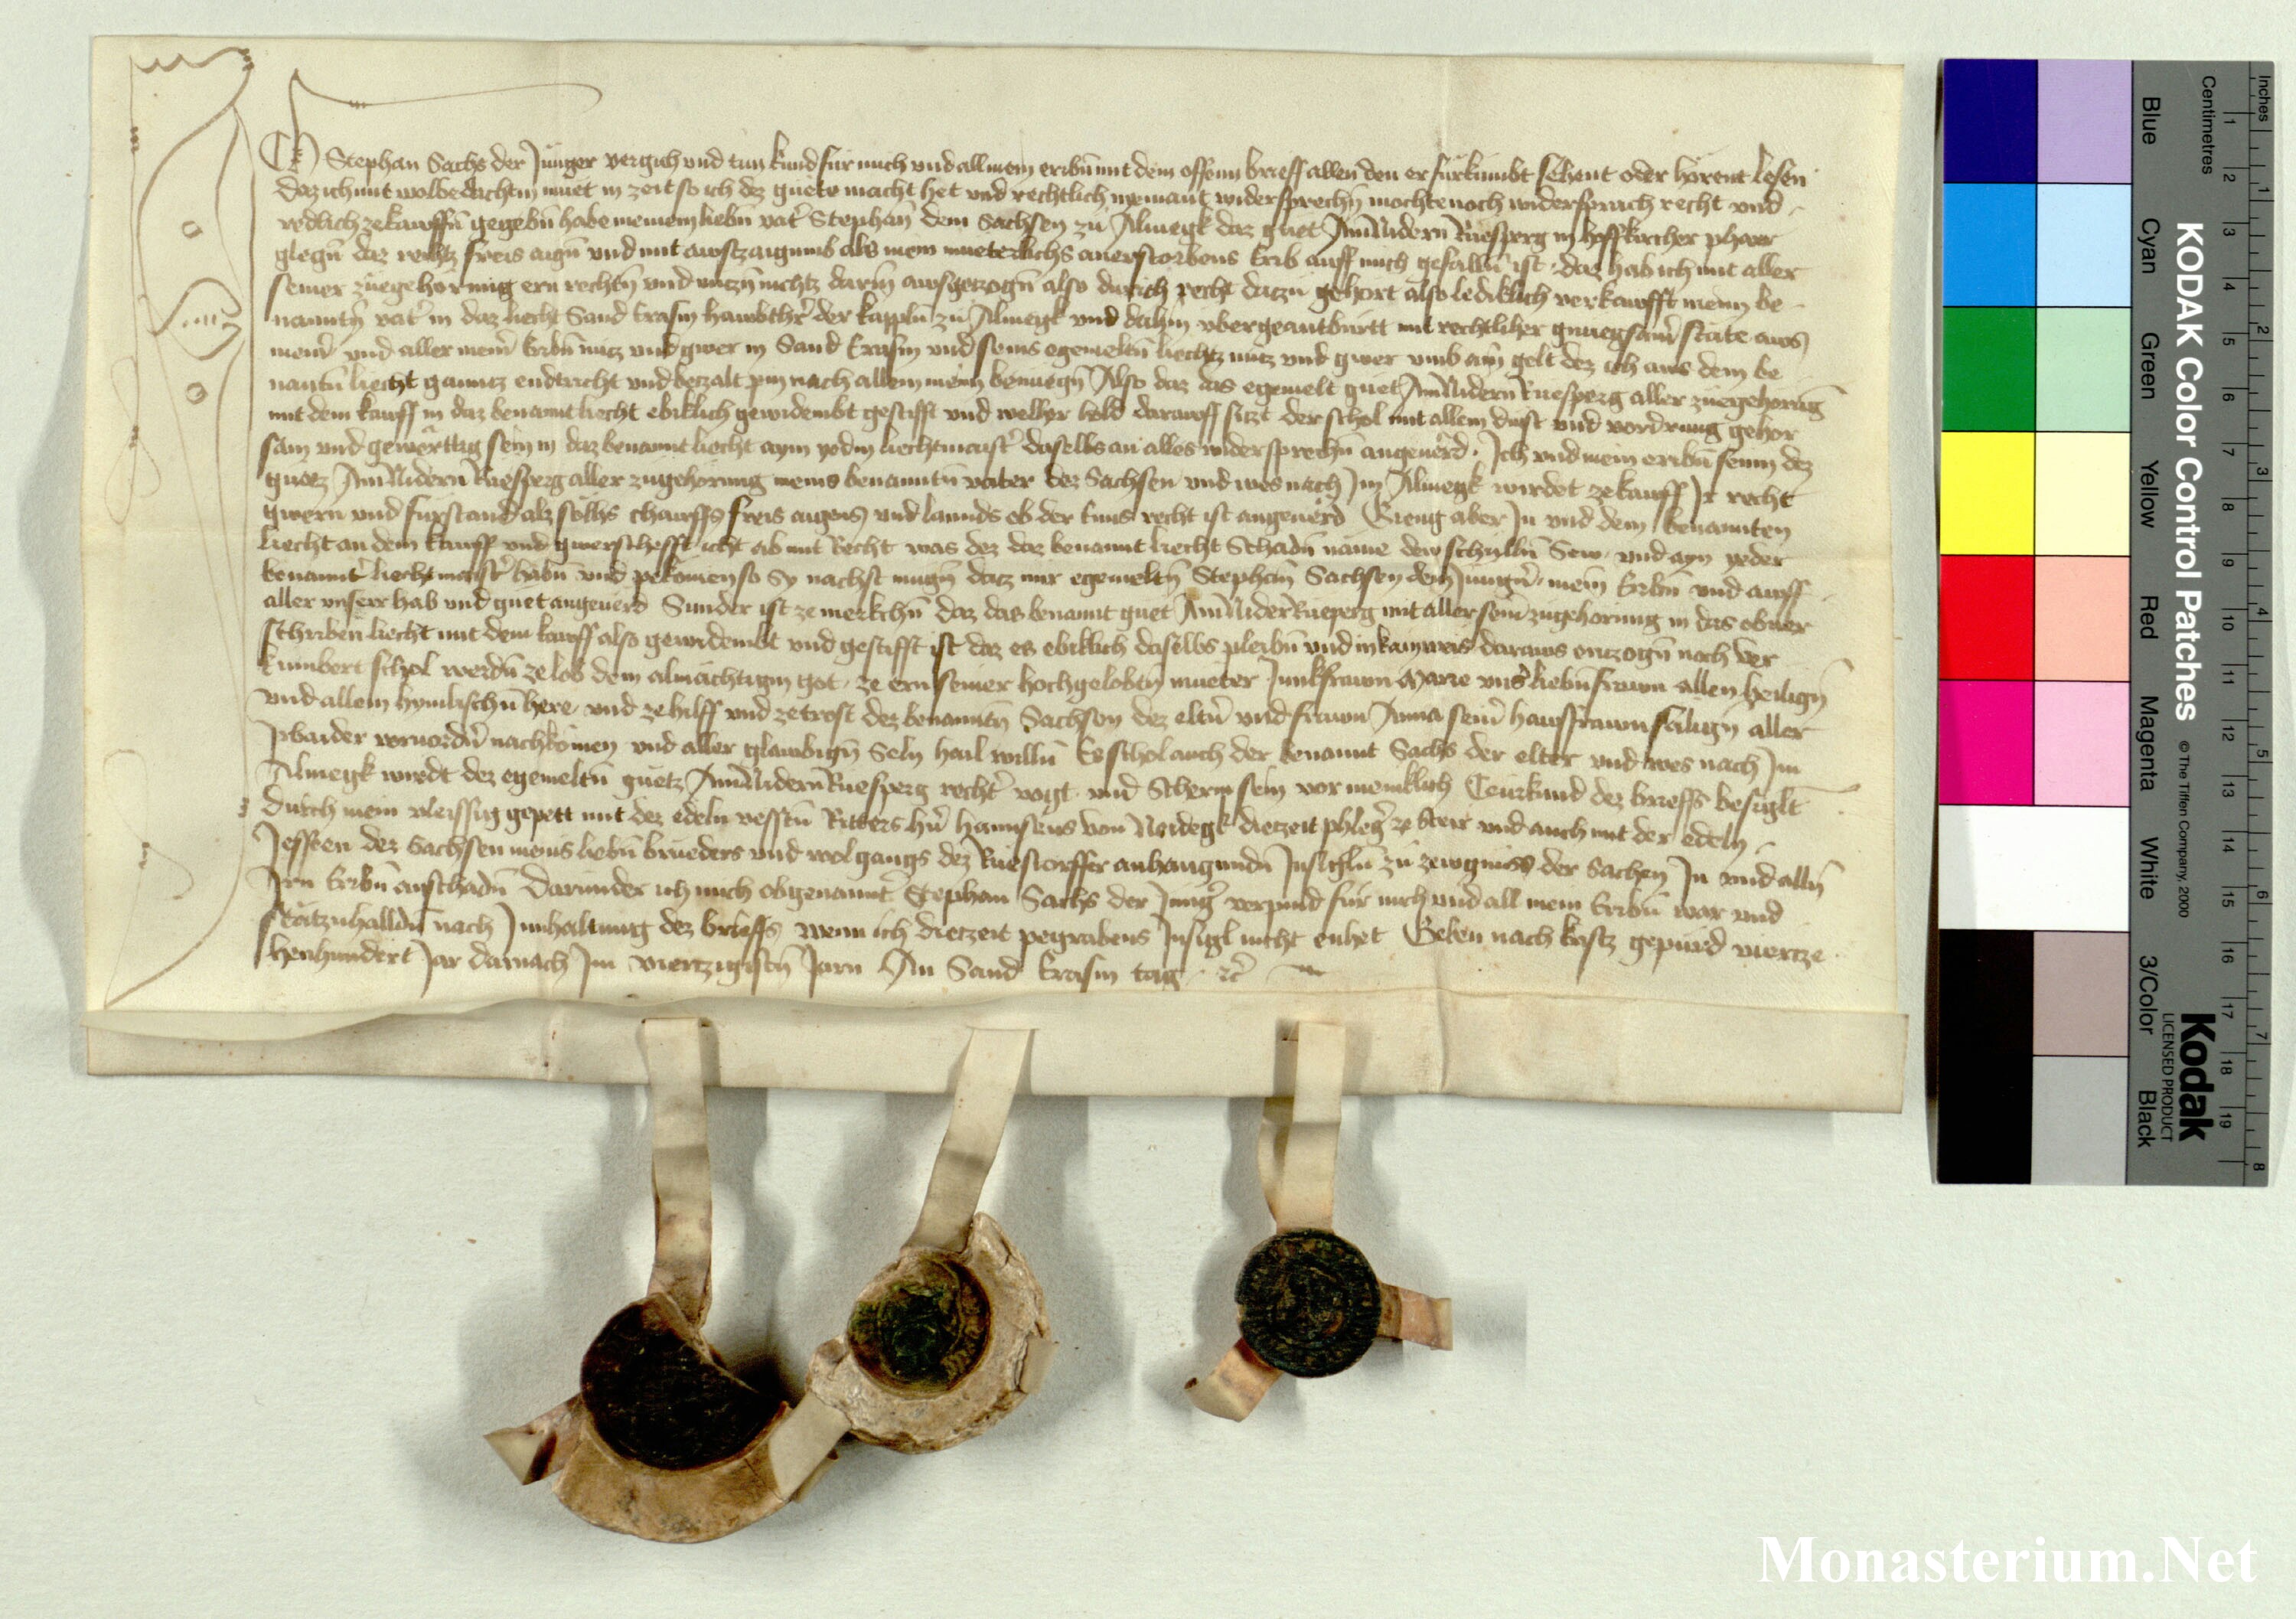 Ich Stephan Sachs der Junger vergich und tun kund fur mich und all mein eribn̄ mit dem offenn brieff allen den er furkumbt sehent oder horent lesen
daz ich mit wolbedachtm muet in zeit so ich dez guets macht het und rechtlich niemant widersprechn̄ mochte noch widersprach recht und
redlich ze kauffn̄ gegebn̄ habe meinem liebn̄ vat̄ Stephan dem Sachsen zu Almegk daz guet Am Nidern Ruesperg in hoffkircher pharr
glegn̄ daz rechtz freis aign̄ und mit auszaigumb als mein mueterlichs anerstorbens Erib auff mich gefalln̄ ist daz hab ich mit aller
seiner zuegehorung ern rechtn̄ und nuczn̄ nichtz darin ausgezogn̄ also durich recht daczu gehort also lediklich verkaufft meim be
nantn̄ vat̄ in daz liecht Sand Erasm hawbthr̄ der kappln̄ zu Almegk und dahin ubergeantburtt mit rechtlicher gnuegsam̄ state aws
mein̄ und aller mein̄ Erbn̄ nucz und gwer in Sand Erasm und seins egemeltn̄ liechtz nucz und gwer umb ain̄ gelt dez ich aws dem be
nantn̄ liecht ganntz endtricht und betzalt pin nach allem meim benuegn̄ Also daz das egemelt guet Am Nidern Ruesperg aller zuegehorung
mit dem kauff in daz benant liecht ebiklich gewidembt gestifft und welher hold darauff sitzt der schol mit allem dinst und vordrung gehor
sam und gewerttig sein in daz benannt liecht aym yedm liechtmaist̄ daselbs an alles widersprechn̄ angeuerd. Ich und mein eribn̄ seinn dez
guetz Am Nidern Ruesperg aller zugehorung meins benanntn̄ vater dez Sachsen und wes nach Im Almegk wirdet ze kauff Ir recht
gwern und furstand alz solhs chauffs freis aigens und lannds ob der Enns recht ist angeuerd Gieng aber In und dem benannten
liecht an dem kauff und gwerschefft icht ab mit Recht was dez daz benannt liecht Schadn̄ name den schulln̄ Sew und ayn yeder
benannt̄ liechtmaist̄ habn̄ und pekomen so Sy nachst mugn̄ datz mir egemeltn̄ Stephan̄ Sachsen dem Jungn̄ mein̄ Erbn̄ und auff
aller unserr hab und guet angeuerd Sunder ist ze merkchn̄ daz das benannt guet Am Nider Rueperg mit aller sein̄ zugehorung in das obuer
schriben liecht mit dem kauff also gewidembt und gestifft ist daz es ebiklich daselbs pleibn̄ und in kain weis daraws enczogn̄ noch ver
kumbert schol werdn̄ ze lob dem almachtign got ze ern seiner hochgelobtn̄ mueter Junkfrawn Marie uns̄ liebn̄ frawn allen heilign̄
und allem hymlischn̄ here und ze hilff und ze trost dez benanntn̄ Sachsen dez eltn̄ und frawn Anna sein̄ hawsfrawn salign̄ aller
Irbaider voruordn̄ nachkomen und aller glawbign̄ Seln hail willn̄ Es schol auch der benannt Sachs der elter und wes nach Im
Almegk wirdt dez egemeltn̄ guetz Am Nidern Ruesperg recht̄ vogt und Scherm sein vor meniklich Ceurkund dez brieffs besiglt
durch mein vleissig gepett mit dez edeln vesstn̄ Ritters hn̄ hannsens von Neidegk dietzeit phleg̃ ze Steir und auch mit der edeln
Jessten dez Sachsen meins liebn̄ brueders und wolgangs dez Ruestorffer anhangundn̄ Insigln̄ zu zewgnuss der Sachen In und alln̄
Irn Erbn̄ anschadn̄ Darunder ich mich obgenannt̄ Stephan Sachs der Jung̃ verpind fur mich und all mein Erbn̄ war und
stätzuhalldn̄ nach Innhaltung dez brieffs wenn ich dietzeit pegrabens Insigl nicht enhet Geben nach kristz gepurd viertze
henhundert Jar darnach Im viertzigistn̄ Jarn An Sand Erasm tag ꝛc̄
KODAK Color Control Patches
© The Tiffen Company, 2000
Kodak
LICENSED PRODUCT
Inches
1 2 3 4 5 6 7 8
Centimetres
1 2 3 4 5 6 7 8 9 10 11 12 13 14 15 16 17 18 19
Blue Cyan Green Yellow Red Magenta White 3/Color Black
Monasterium.Net